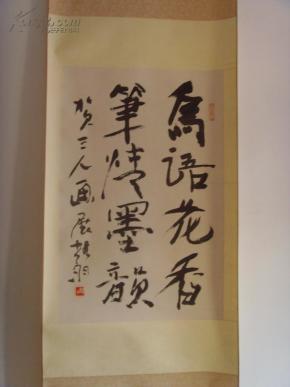 鳥語花香
筆情墨韻
賀三人画展